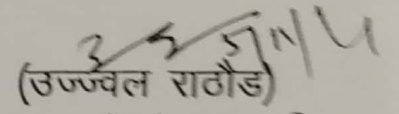 (उज्ज्वल राठौड)